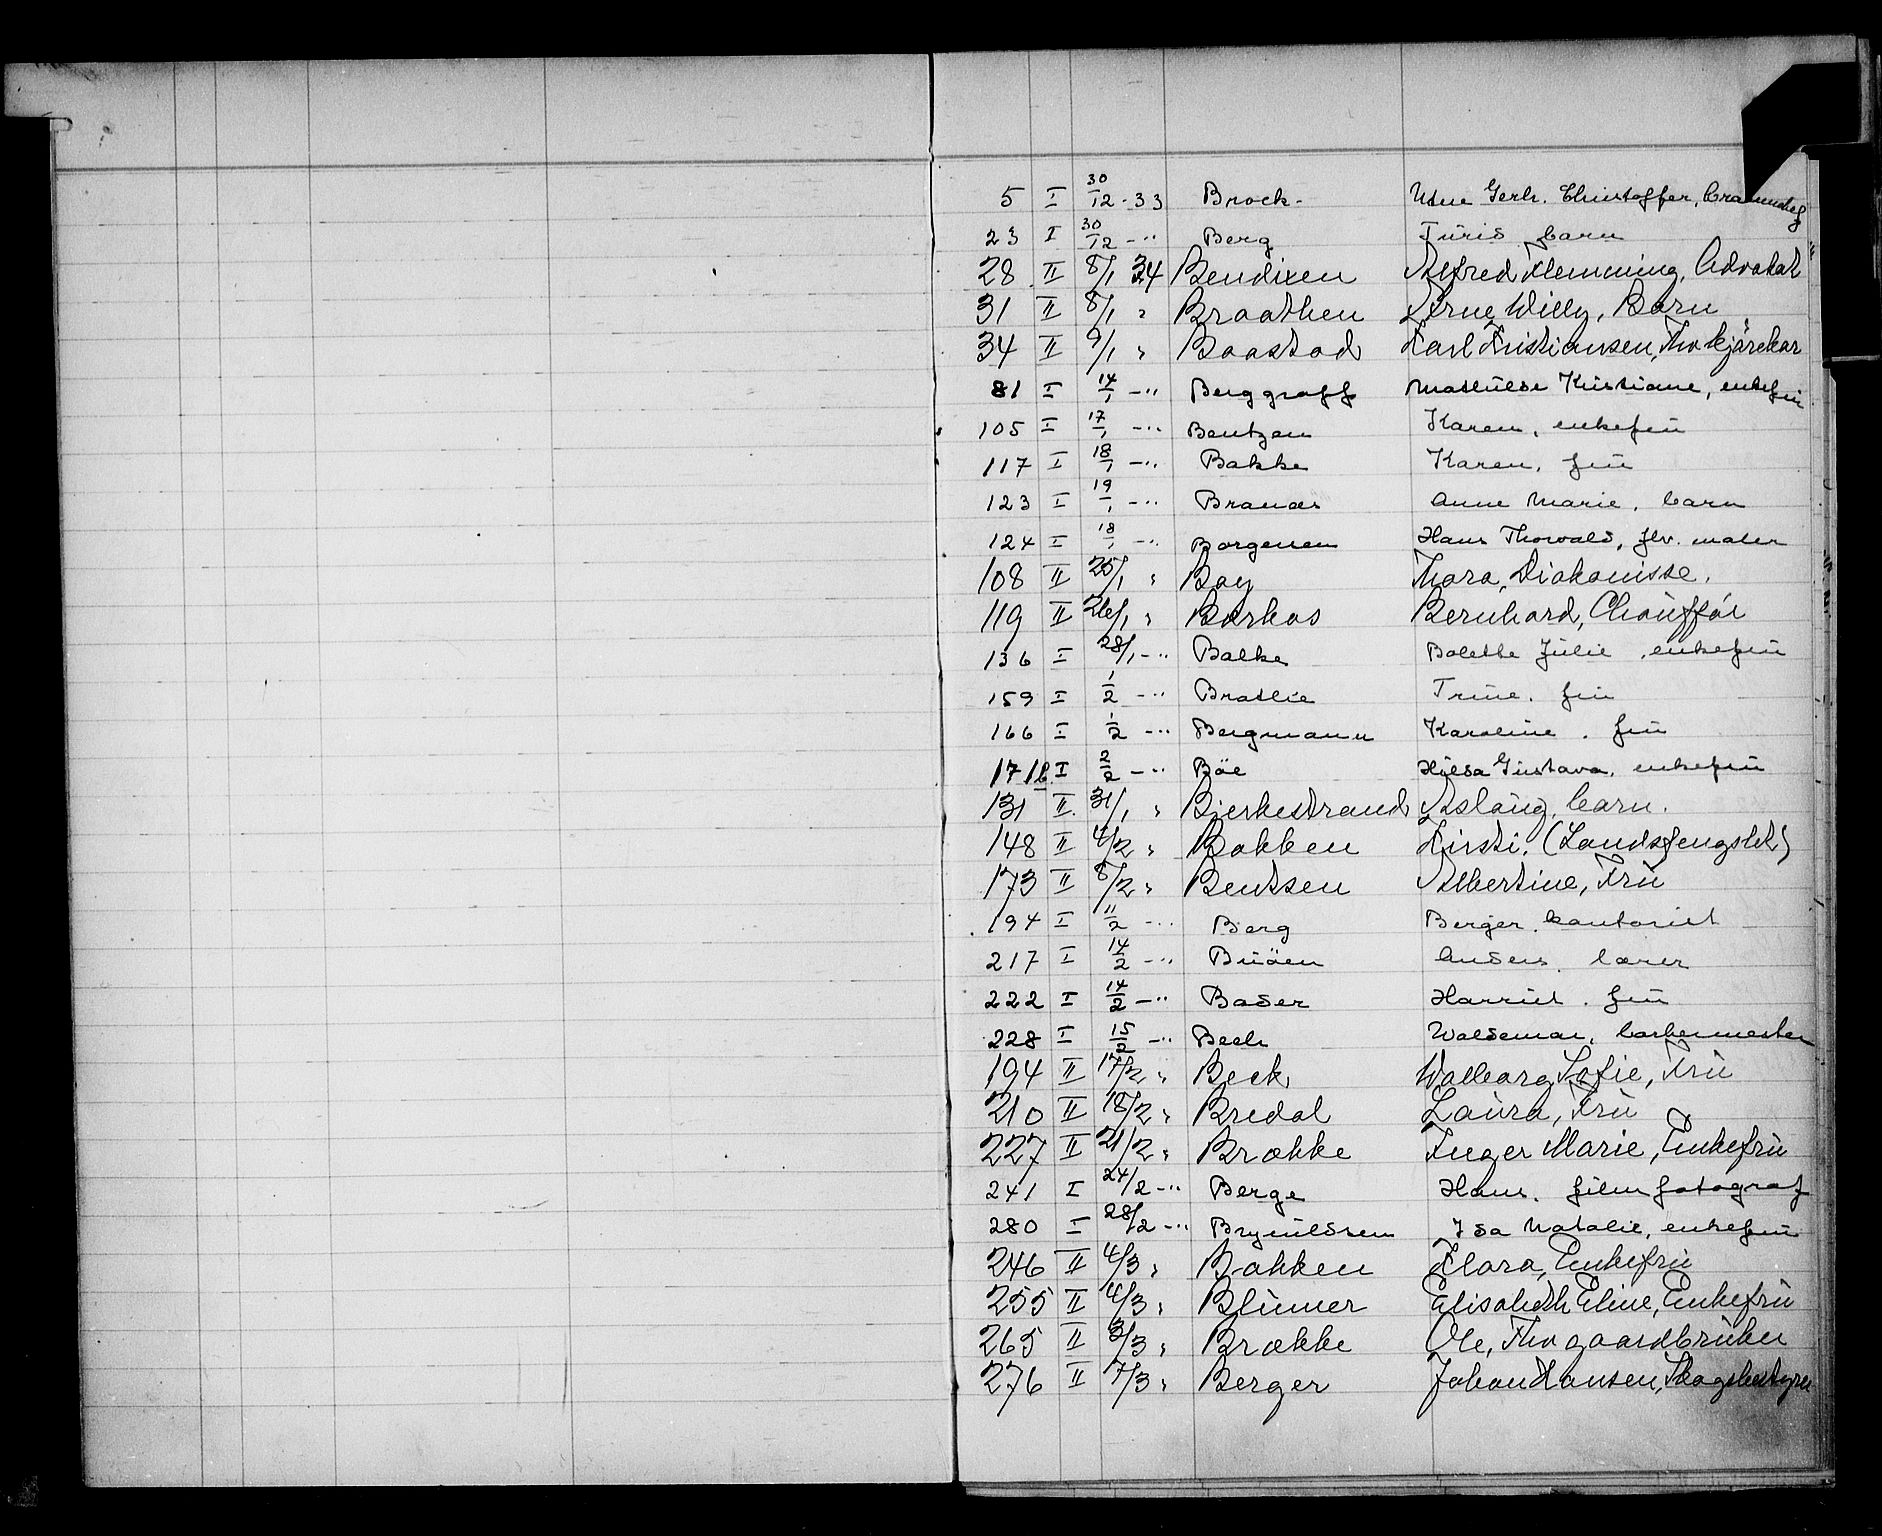 5 I 30/12-33 Brock- Gerh. Christoffer,
23 I 30/12 -" Berg Turid barn
28 II 8/1 34 Bendixen Alfred Flemming, Advokat
31 II 8/1 " Braathen Arne Willy, Barn
34 II 9/1 " Baastad Karl Kristiansen, Fhv kjørekar
81 I 14/1 -" Berggraff Mathilde Kristiane, enkefrü
105 I 17/1 -" Bentzen Karen, enkefrü
117 I 18/1 -" Bakke Karen, frü
123 I 19/1 -" Brandes Anne Marie, barn
124 I 18/1 -" Borgersen Hans Thorvald, fhv. maler
108 II 25/1 " Boy Thora, Diakonisse.
119 II 26/1 " Barkas Bernhard, Chaüffør
136 I 28/1 -" Balke Bolette Jülie, enkefrü
159 I 1/2 -" Bratlie Trine, frü
166 I 1/2 -" Bergmann Karoline, frü
171b I 2/2 -" Böe Hilda Güstava, enkefrü
131 II 31/1 " Bjerkestrand Aslaüg, barn.
148 II 4/2 " Bakken Kirsti. (Landsfengslet)
173 II 8/2 " Bentsen Albertine, Frü
194 I 11/2 -" Berg Berger, kontorist
217 I 14/2 -" Buöen Anders, lærer
222 I 14/2 -" Bader Harriet, frü
228 I 15/2 -" Bech Waldemar, barbermester
194 II 17/2 " Beck Walborg Sofie, Frü
210 II 18/2 " Bredal Laüra, Frü
227 II 21/2 " Brække Inger Marie, Enkefrü
241 I 24/2 -" Berge Hans, filmfotograf
280 I 28/2 -" Brynildsen Ida Natalie, enkefrü
246 II 4/3 " Bakken Klara, Enkefrü
255 II 4/3 " Blümer Elisabeth Eline, Enkefrü
265 II /3 " Brække Ole, Fhv gaardbrüker
276 II 7/3 " Berger Johan Hansen, Skogsbestyrer